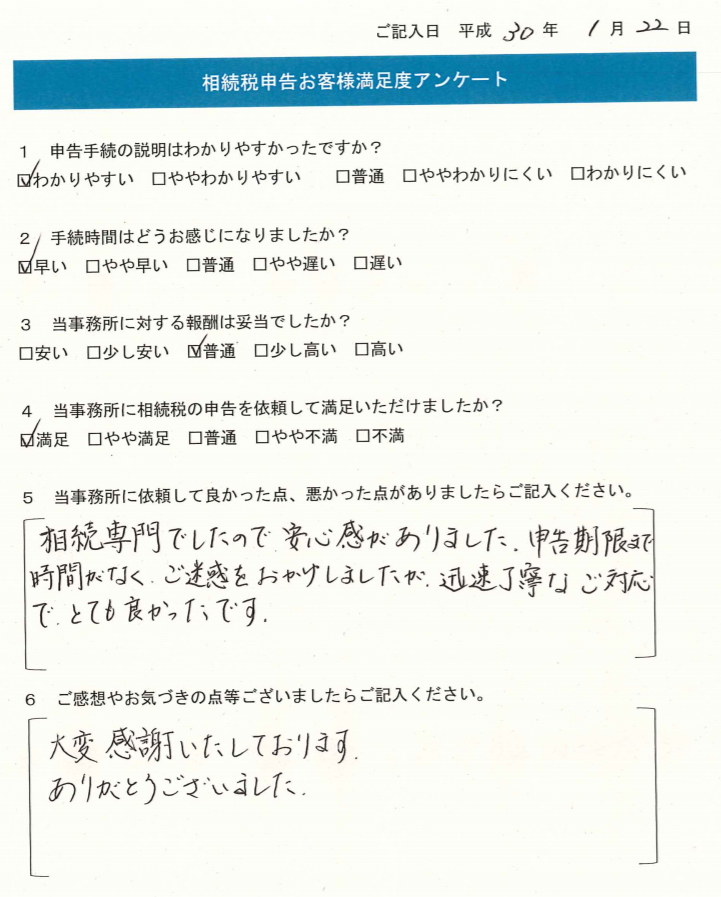 ご記入日 平成 30 年 1 月 22 日
相続税申告お客様満足度アンケート
1 申告手続の説明はわかりやすかったですか？
☑わかりやすい □ややわかりやすい □普通 □ややわかりにくい □わかりにくい
2 手続時間はどうお感じになりましたか？
☑早い □やや早い □普通 □やや遅い □遅い
3 当事務所に対する報酬は妥当でしたか？
□安い □少し安い ☑普通 □少し高い □高い
4 当事務所に相続税の申告を依頼して満足いただけましたか？
☑満足 □やや満足 □普通 □やや不満 □不満
5 当事務所に依頼して良かった点、悪かった点がありましたらご記入ください。
相続専門でしたので安心感がありました。申告期限まで
時間がなく、ご迷惑をおかけしましたが、迅速丁寧なご対応
で、とても良かったです。
6 ご感想やお気づきの点等ございましたらご記入ください。
大変感謝いたしております。
ありがとうございました。